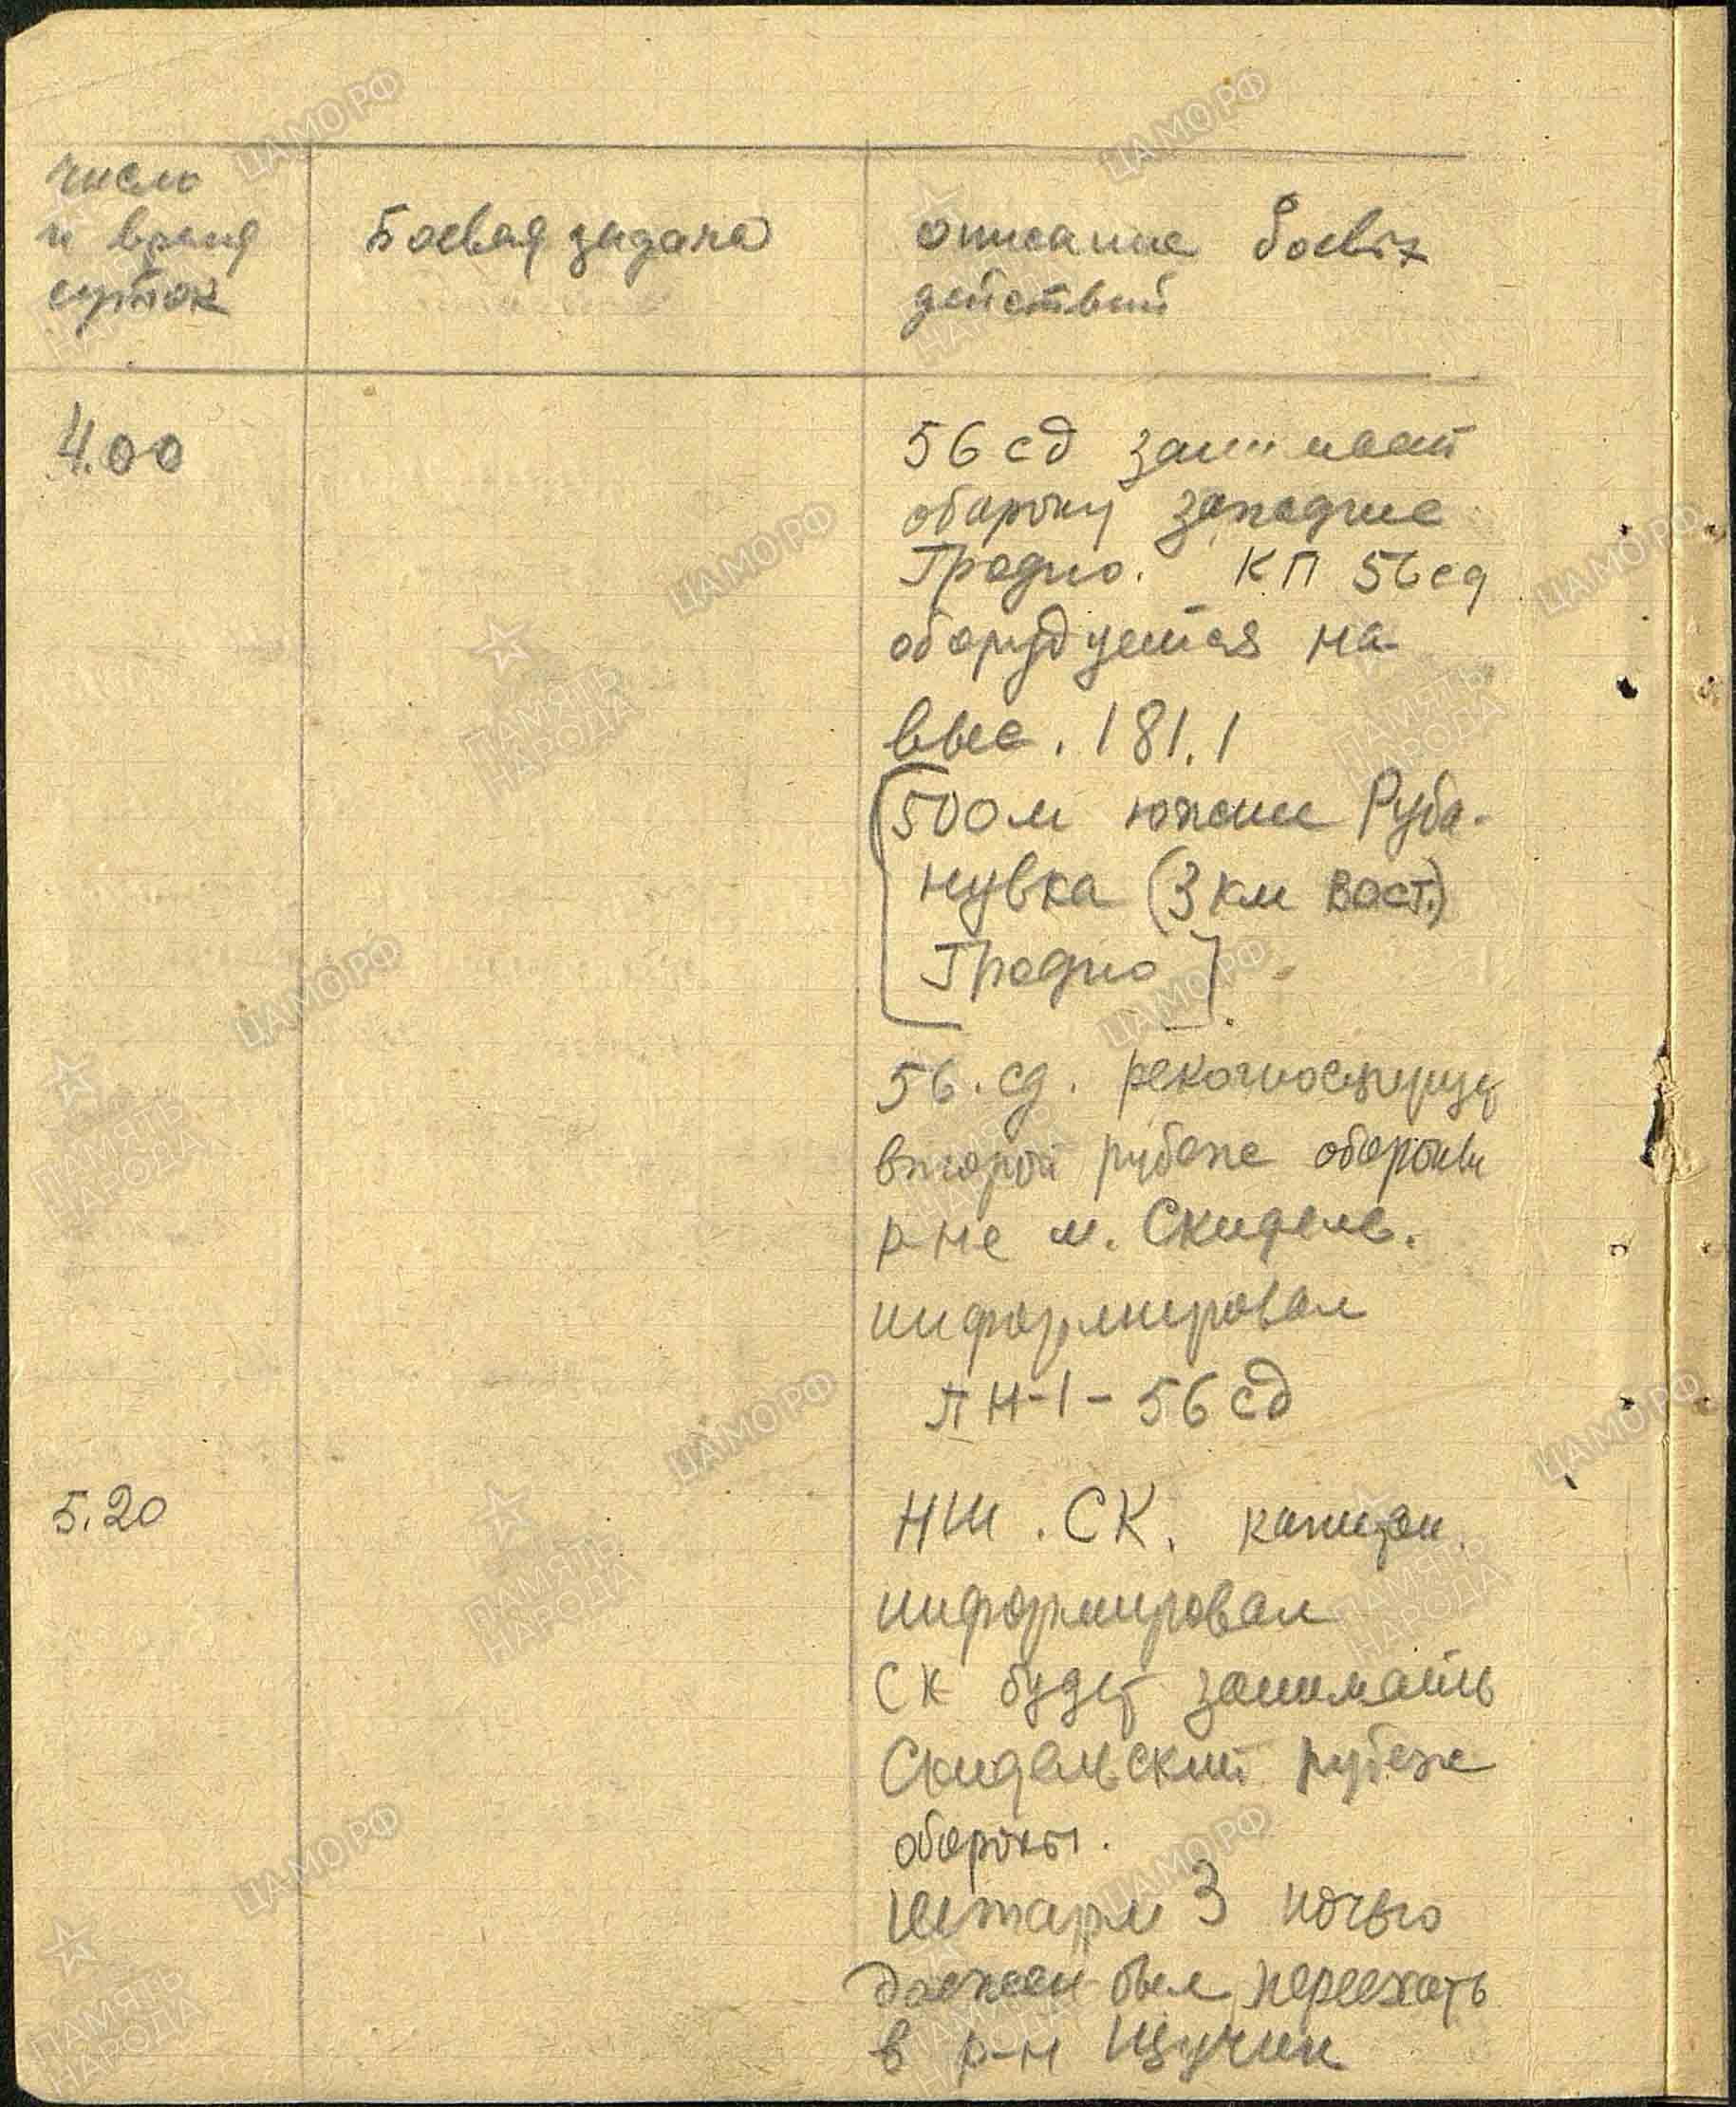 число
и время
суток
Боевая задача
описание боевых
действий
4.00
56 сд занимает
оборону западнее
Гродно. КП 56 сд
оборудуется на
выс. 181.1
[500 м южнее Руба-
нувка (3 км вост.)
Гродно].
56. сд. рекогносцирует
второй рубеж обороны
р-не м. Скидель.
информировал
ПН-1-56 сд
5.20
НШ. СК. капитан
информировал
СК будет занимать
Скидельский рубеж
обороны.
Штарм 3 ночью
должен был переехать
в р-н Щучин
ЦАМО.РФ
ПАМЯТЬ
НАРОДА